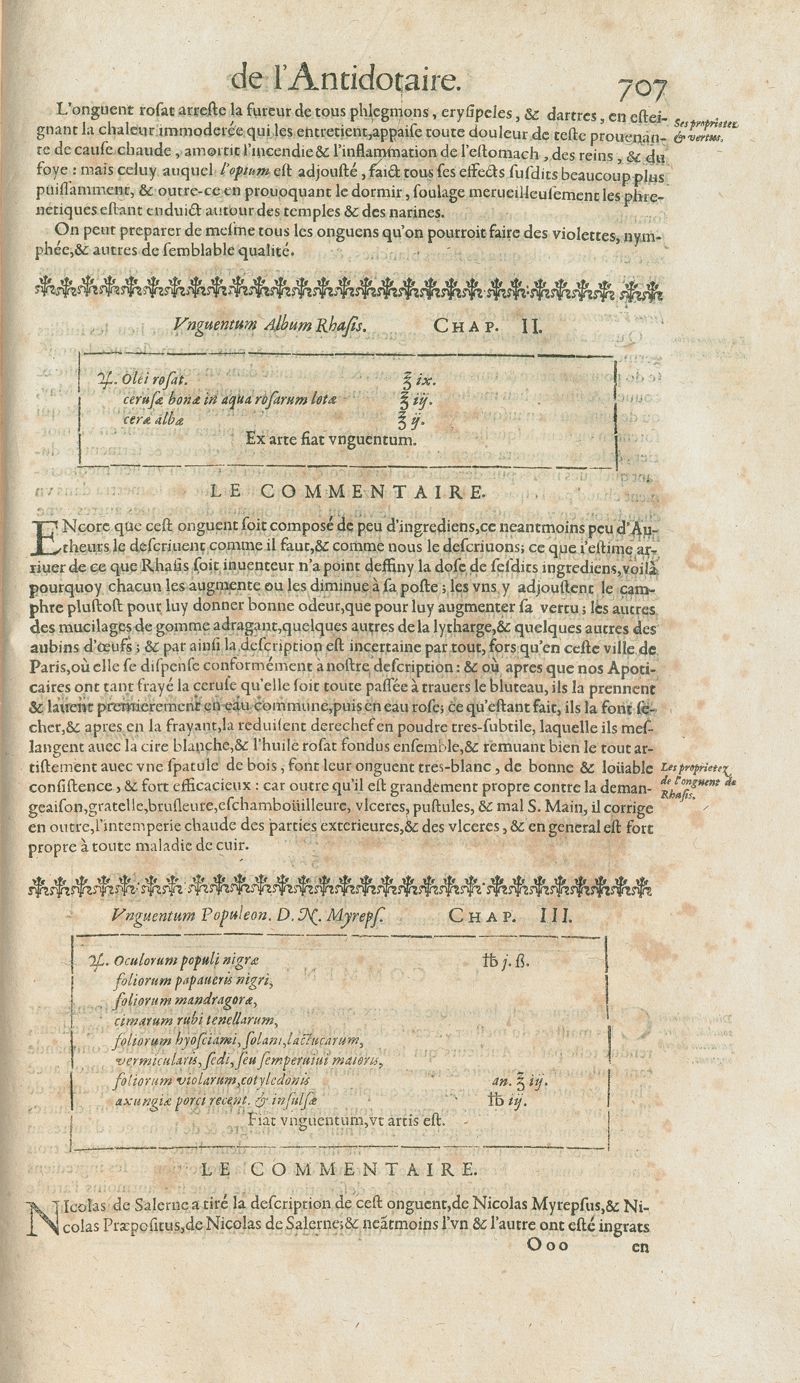 de l'Antidotaire. 707
L'onguent rosat arreſte la fureur de tous phlegmons, eryſipeles, & dartres, en eſtei-
gnant la chaleur immoderée qui les entretient,appaiſe toute douleur de teſte prouenan-
te de cauſe chaude, amortit l'incendie & l'inflammation de l'eſtomach, des reins, & du
foye : mais celuy auquel l'opium eſt adjouſté, faict tous ſes effects ſuſdits beaucoup plus
puiſſamment, & outre-ce en prouoquant le dormir, ſoulage merueilleuſement les phre-
netiques eſtant enduict autour des temples & des narines.
Ses proprietez
& vertus.
On peut preparer de meſme tous les onguens qu'on pourroit faire des violettes, nym-
phée,& autres de ſemblable qualité.
Vnguentum Album Rhaſis. CHAP. II.
♃. Olei roſat. ℥ ix.
ceruſæ bonæ in aqua roſarum lotæ ℥ iij.
ceræ albæ ℥ ij.
Ex arte fiat vnguentum.
LE COMMENTAIRE.
ENcore que ceſt onguent ſoit compoſé de peu d'ingrediens,ce neantmoins peu d'Au-
theurs le deſcriuent comme il faut,& comme nous le deſcriuons; ce que i'eſtime ar-
riuer de ce que Rhaſis ſoit inuenteur n'a point deffiny la doſe de ſeſdits ingrediens,voilà
pourquoy chacun les augmente ou les diminue à ſa poſte ; les vns y adjouſtent le cam-
phre pluſtoſt pour luy donner bonne odeur,que pour luy augmenter ſa vertu ; les autres
des mucilages de gomme adragant,quelques autres de la lytharge,& quelques autres des
aubins d'œufs ; & par ainſi la deſcription eſt incertaine par tout, fors qu'en ceſte ville de
Paris,où elle ſe diſpenſe conformément à noſtre deſcription : & où apres que nos Apoti-
caires ont tant frayé la ceruſe qu'elle ſoit toute paſſée à trauers le bluteau, ils la prennent
& lauent premierement en eau commune,puis en eau roſe; ce qu'eſtant fait, ils la font ſe-
cher,& apres en la frayant,la reduiſent derechef en poudre tres-ſubtile, laquelle ils meſ-
langent auec la cire blanche,& l'huile roſat fondus enſemble,& remuant bien le tout ar-
tiſtement auec vne ſpatule de bois, font leur onguent tres-blanc, de bonne & loüable
conſiſtence, & fort efficacieux : car outre qu'il eſt grandement propre contre la deman-
geaiſon,gratelle,bruſleure,eſchamboüilleure, vlceres, puſtules, & mal S. Main, il corrige
en outre,l'intemperie chaude des parties exterieures,& des vlceres, & en general eſt fort
propre à toute maladie de cuir.
Les proprietez
de l'onguent de
Rhaſis.
Vnguentum Populeon. D. N. Myrepſ. CHAP. III.
♃. Oculorum populi nigræ ℔ j. ß.
foliorum papaueris nigri,
foliorum mandragoræ,
cimarum rubi tenellarum,
foliorum hyoſciami, ſolani,lactucarum,
vermicularis, ſedi, ſeu ſemperuiui maioris,
foliorum violarum,cotyledonis an. ℥ iij.
axungiæ porci recent. & inſulſæ ℔ ij.
Fiat vnguentum,vt artis eſt.
LE COMMENTAIRE.
NIcolas de Salerne a tiré la deſcription de ceſt onguent,de Nicolas Myrepſus,& Ni-
colas Præpoſitus,de Nicolas de Salerne;& neãtmoins l'vn & l'autre ont eſté ingrats
Ooo en